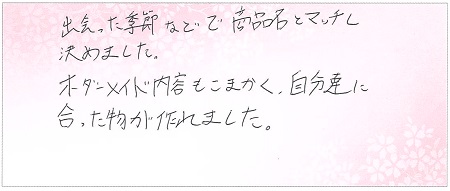 出会った季節などで商品名とマッチし
決めました。
オーダーメイド内容もこまかく、自分達に
合った物が作れました。